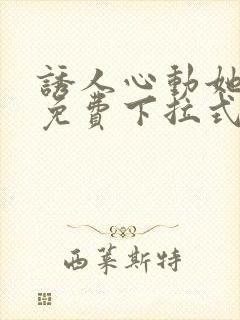 誘人心動她
免費下拉式
西萊斯特